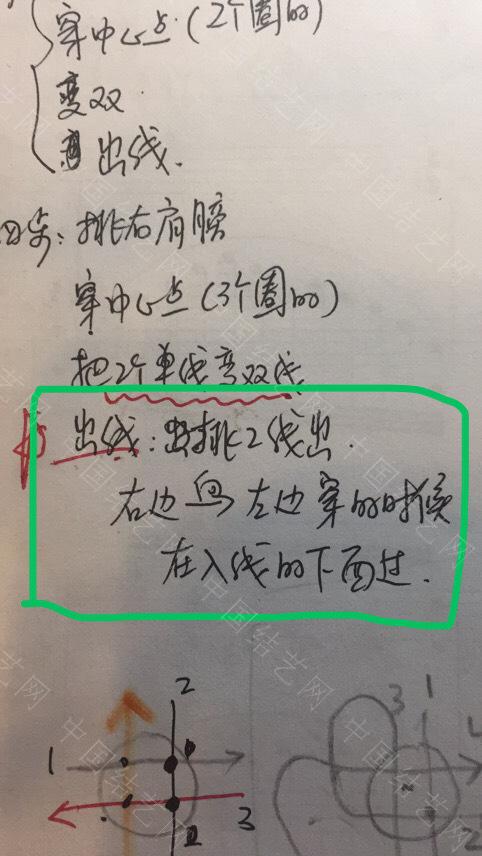 穿中心点(2个圈的)
变双
出线.
四步: 排右肩膀
穿中心点(3个圈的)
把2个单线变双线
出线: 排2线出.
右边向左边穿的时候
在入线的下面过.
2
3
1
1
3
2
中国结艺网